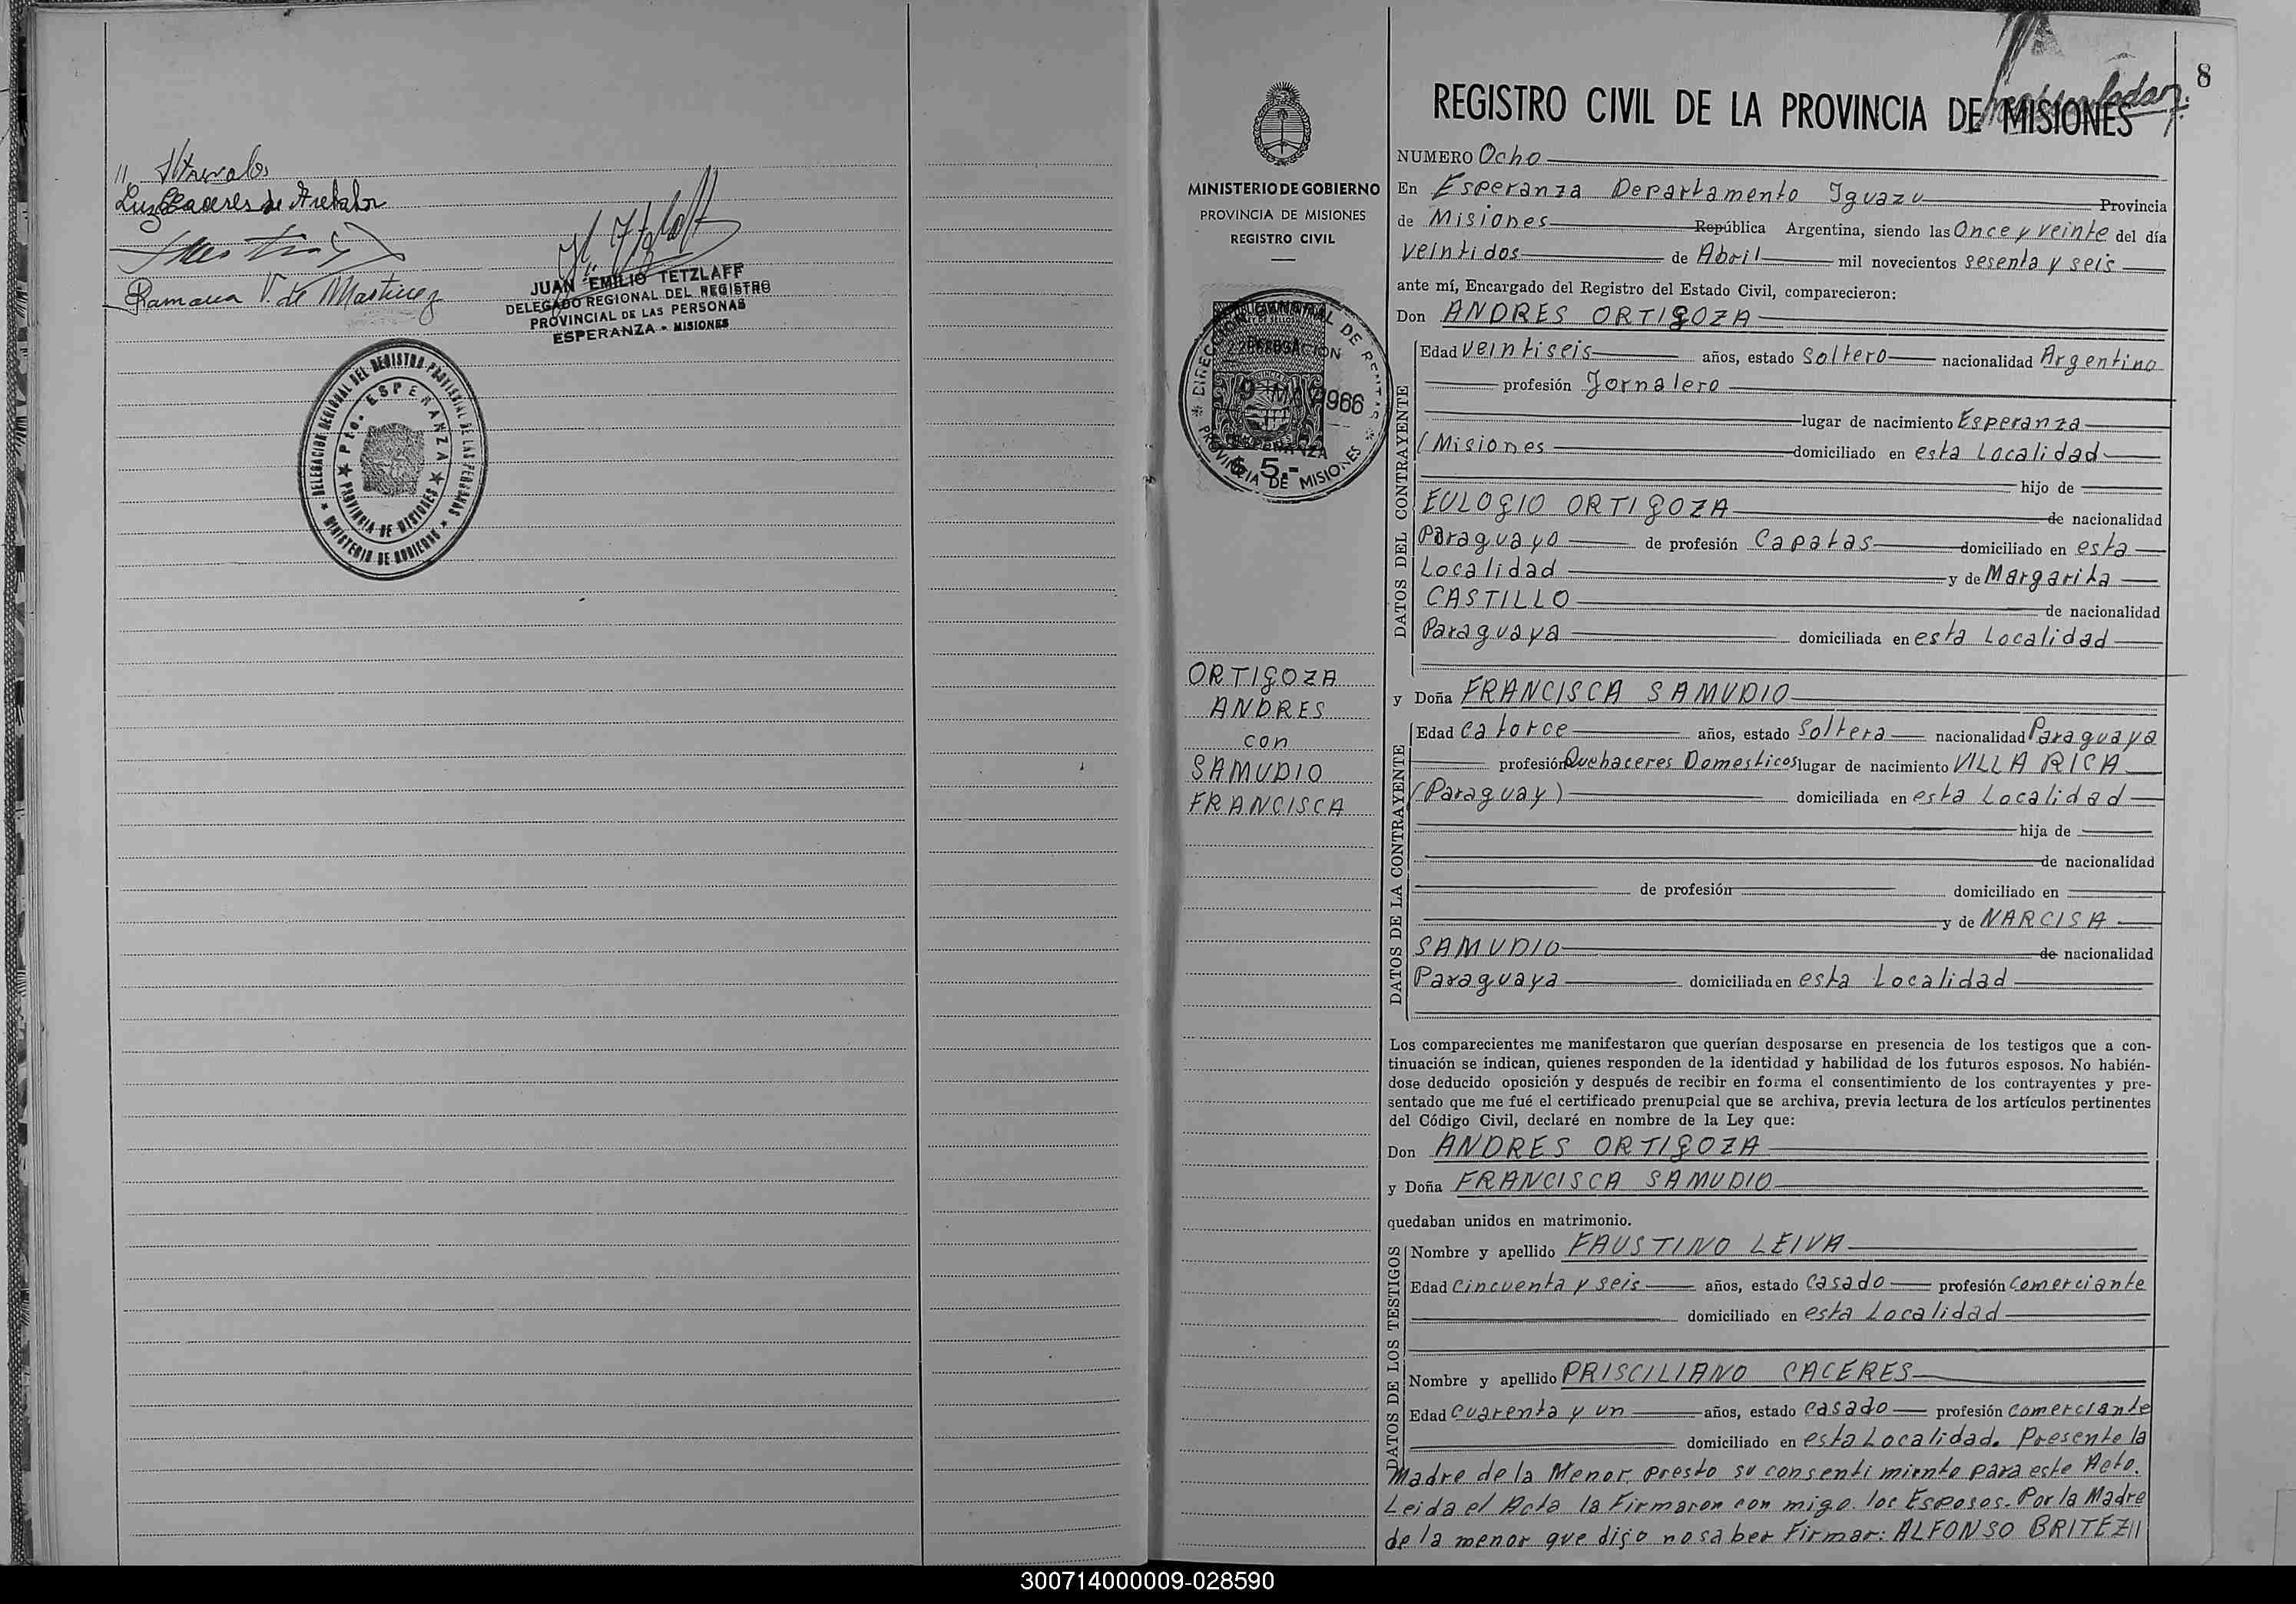 Luz Caceres de
Ramona V. de Martinez
JUAN EMILIO TETZLAFF
DELEGADO REGIONAL DEL REGISTRO
PROVINCIAL DE LAS PERSONAS
ESPERANZA - MISIONES
DELEGACION REGIONAL DEL REGISTRO PROVINCIAL DE LAS PERSONAS
MINISTERIO DE GOBIERNO
Pto. ESPERANZA
PROVINCIA DE MISIONES
8
REGISTRO CIVIL DE LA PROVINCIA DE MISIONES
MINISTERIO DE GOBIERNO
PROVINCIA DE MISIONES
REGISTRO CIVIL
DIRECCION GENERAL DE RENTAS
1966
ESPERANZA
5.-
PROVINCIA DE MISIONES
ORTIGOZA
ANDRES
con
SAMUDIO
FRANCISCA
NUMERO Ocho
En Esperanza Departamento Iguazu Provincia
de Misiones República Argentina, siendo las Once y veinte del día
veintidos de Abril mil novecientos sesenta y seis
ante mí, Encargado del Registro del Estado Civil, comparecieron:
Don ANDRES ORTIGOZA
DATOS DEL CONTRAYENTE
Edad veintiseis años, estado Soltero nacionalidad Argentino
profesión Jornalero
lugar de nacimiento Esperanza
(Misiones domiciliado en esta Localidad
hijo de
EULOGIO ORTIGOZA de nacionalidad
Paraguayo de profesión Capatas domiciliado en esta
Localidad y de Margarita
CASTILLO de nacionalidad
Paraguaya domiciliada en esta Localidad
y Doña FRANCISCA SAMUDIO
DATOS DE LA CONTRAYENTE
Edad catorce años, estado Soltera nacionalidad Paraguaya
profesión Quehaceres Domesticos lugar de nacimiento VILLA RICA
(Paraguay) domiciliada en esta Localidad
hija de
de nacionalidad
de profesión domiciliado en
y de NARCISA
SAMUDIO de nacionalidad
Paraguaya domiciliada en esta Localidad
Los comparecientes me manifestaron que querían desposarse en presencia de los testigos que a con-
tinuación se indican, quienes responden de la identidad y habilidad de los futuros esposos. No habién-
dose deducido oposición y después de recibir en forma el consentimiento de los contrayentes y pre-
sentado que me fué el certificado prenupcial que se archiva, previa lectura de los artículos pertinentes
del Código Civil, declaré en nombre de la Ley que:
Don ANDRES ORTIGOZA
y Doña FRANCISCA SAMUDIO
quedaban unidos en matrimonio.
DATOS DE LOS TESTIGOS
Nombre y apellido FAUSTINO LEIVA
Edad Cincuenta y seis años, estado Casado profesión Comerciante
domiciliado en esta Localidad
Nombre y apellido PRISCILIANO CACERES
Edad Cuarenta y un años, estado Casado profesión comerciante
domiciliado en esta Localidad. Presente la
Madre de la Menor, presto su consentimiento para este Acto.
Leida el Acta la Firmaron con migo. los Esposos. Por la Madre
de la menor que dijo no saber Firmar: ALFONSO BRITEZ//
300714000009-028590